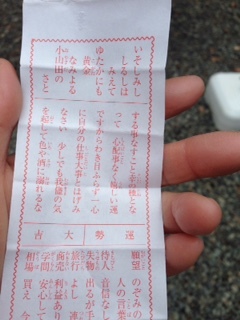 いそしみし
しるしは
みえて
ゆたかにも
黄金
なみよる
小山田の
さと
する事なすこと幸の種とな
って 心配事なく 嬉しい運
ですからわき目ふらず一心
に自分の仕事大事とはげみ
なさい 少しでも我儘の気
を起して色や酒に溺れるな
運勢 大吉
願望 のぞみの
人の言葉
待人 音信なし
失物 出るが手
旅行 よし
商売 利益あり
学問 安心して
相場 買え 今